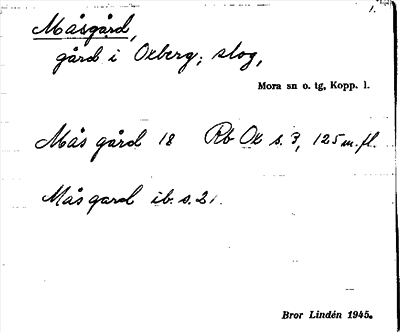 1.
Måsgård,
gård i Oxberg; slog,
Mora sn o. tg, Kopp. l.
Mås gård 18 Rb Ox s. 3, 125 m. fl.
Mås gard ib. s. 21.
Bror Lindén 1945.